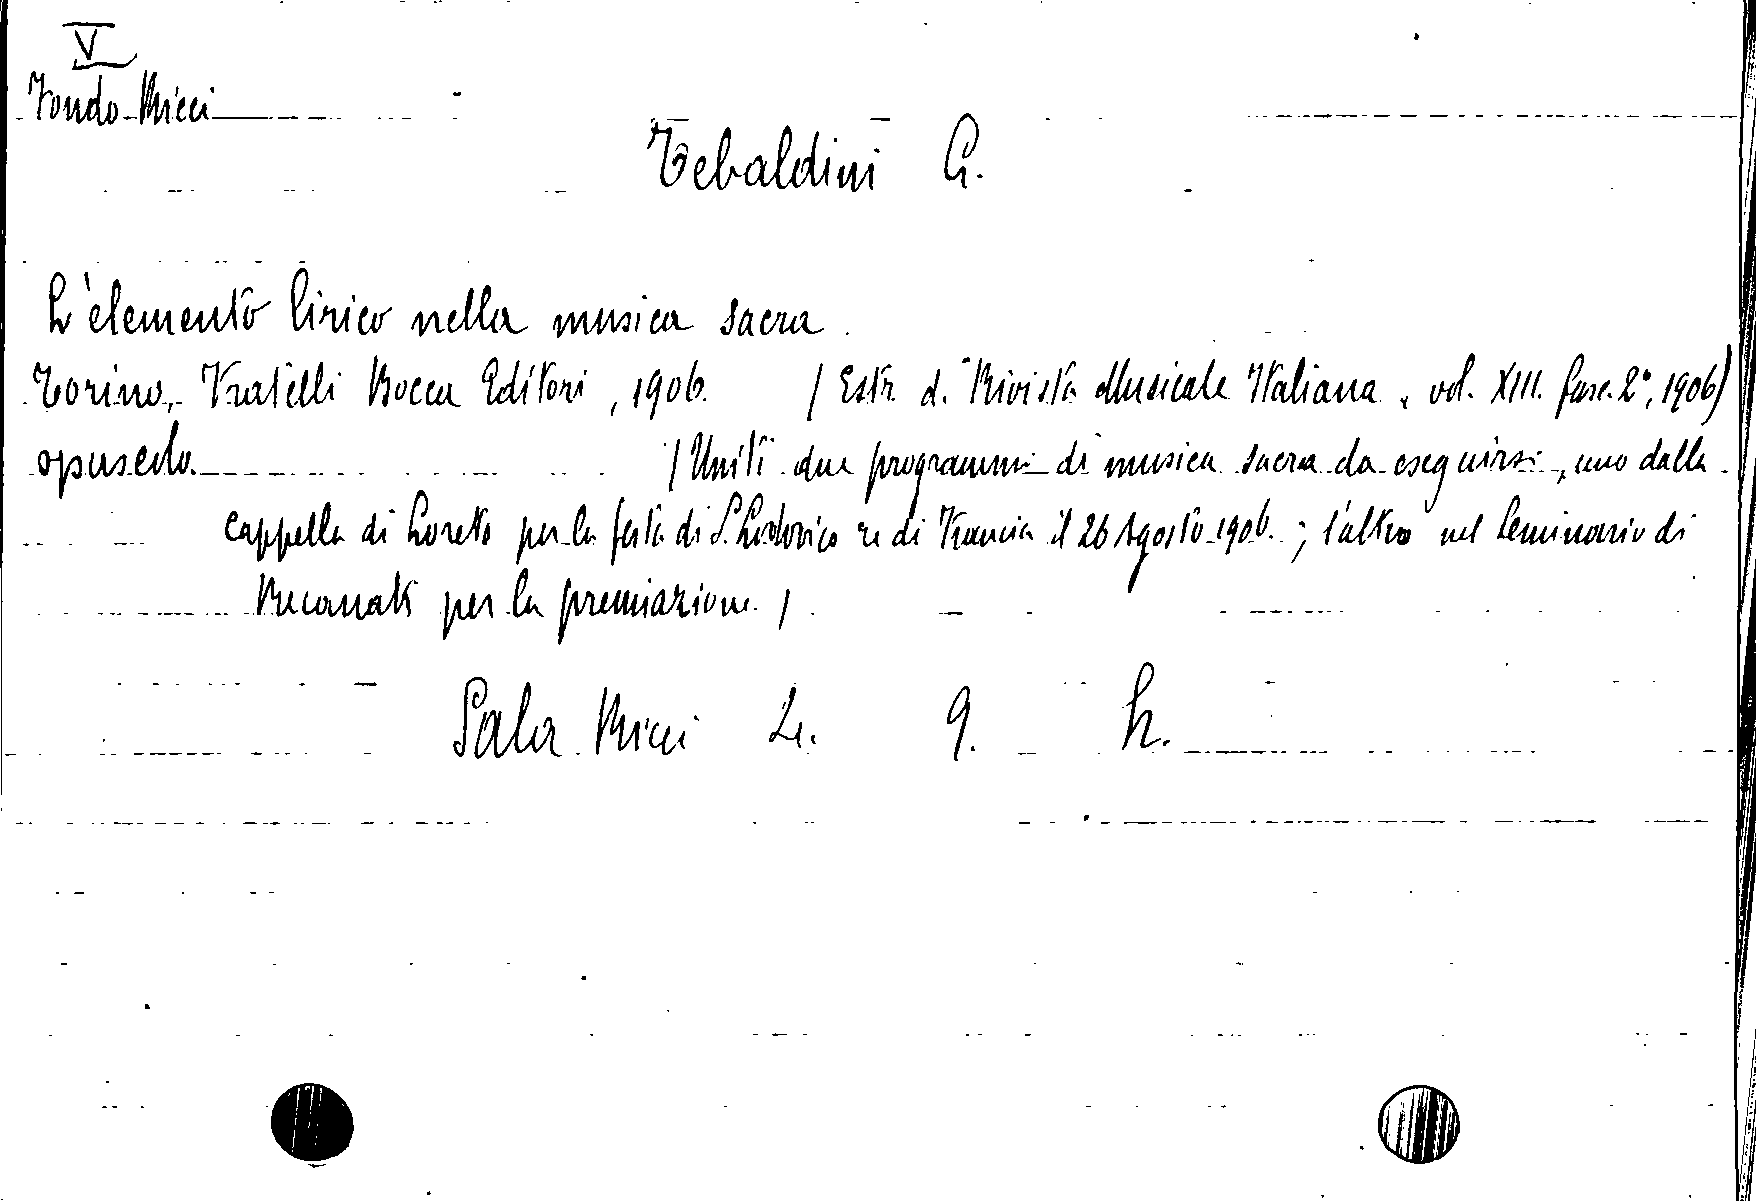 V
Fondo Ricci
Tebaldini G.
L'elemento lirico nella musica sacra.
Torino, Fratelli Bocca Editori, 1906. (Estr. d. "Rivista Musicale Italiana", vol. XIII. fasc. 2°, 1906)
opuscolo. (Uniti due programmi di musica sacra da eseguirsi, uno dalla
Cappella di Loreto per la festa di S. Lodovico re di Francia il 26 Agosto 1906.; l'altro nel Seminario di
Recanati per la premiazione)
Sala Ricci L. 9. h.